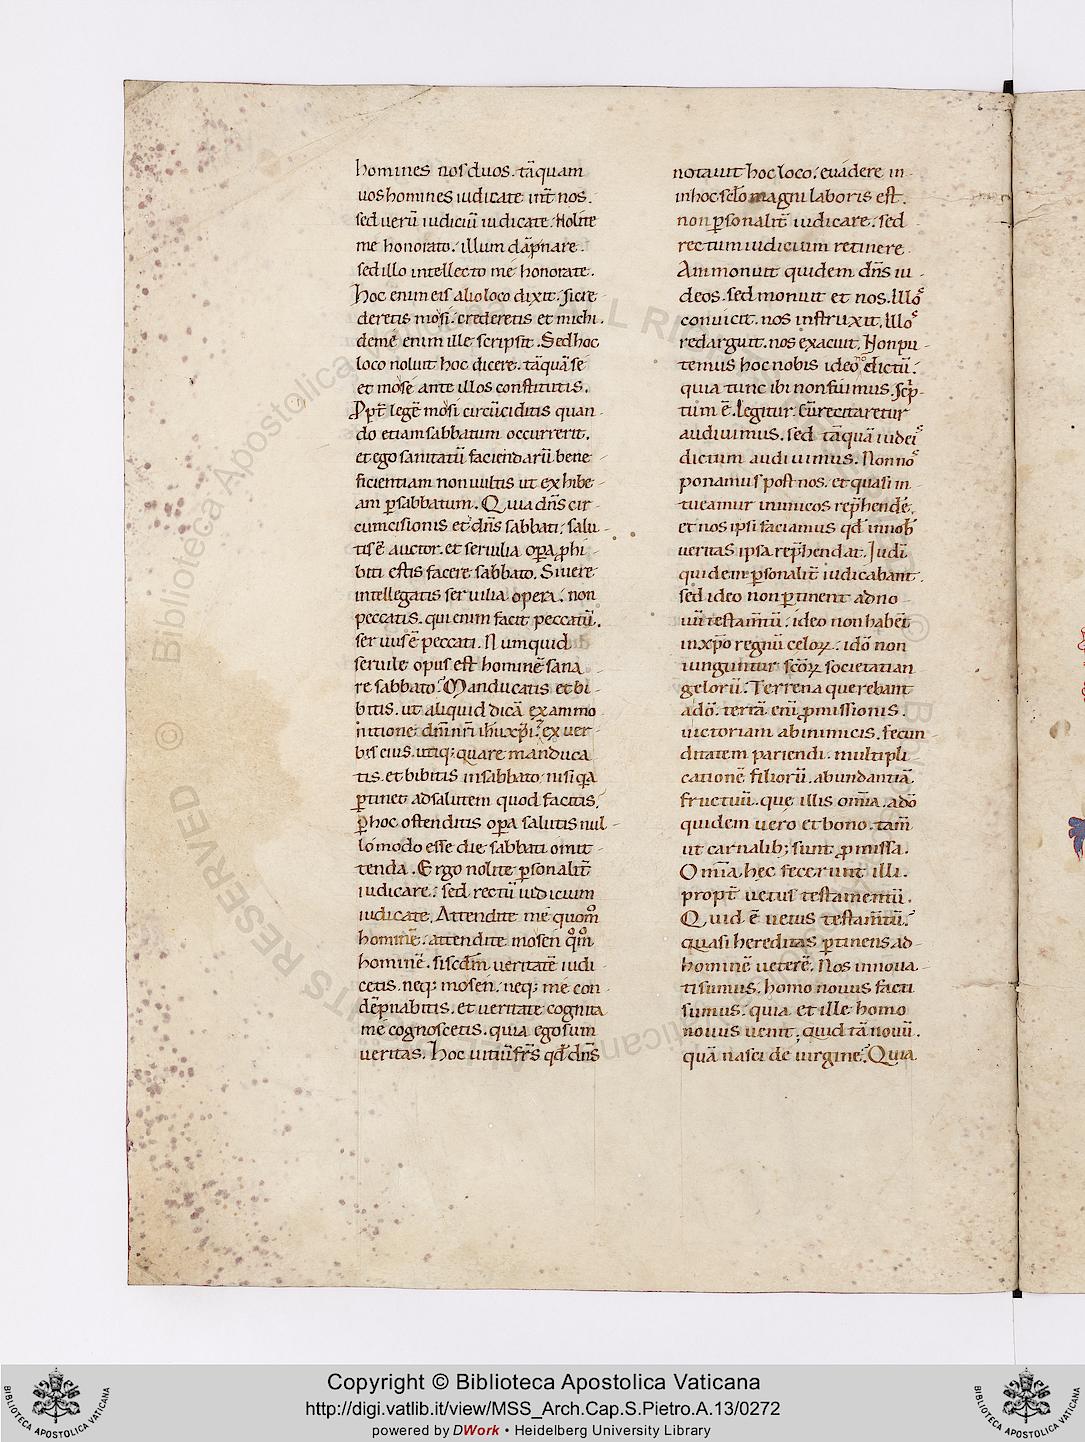 homines nos duos. tãquam
uos homines iudicate int̃ nos.
sed uerũ iudiciũ iudicate. Nolite
me honorato. illum dãpnare.
sed illo intellecto me honorate.
Hoc enim eis alio loco dixit. si cre
deretis mosi. crederetis et michi.
de me enim ille scripsit. Sed hoc
loco noluit hoc dicere. tãquã se
et mosé ante illos constitutis.
Ppt̃ legẽ mosi circũciditis quan-
do etiam sabbatum occurrerit.
et ego sanitatũ faciendarũ bene-
ficientiam non uultis ut exhibe-
am p̱ sabbatum. Quia dñs cir-
cumcisionis et dñs sabbati; salu-
tis ẽ auctor. et seruilia opa ꝓhi-
biti estis facere sabbato. Si uere
intellegatis seruilia opera. non
peccatis. qui enim facit peccatũ.
seruus ẽ peccati. Numquid
seruile opus est hominẽ sana
re sabbato? Manducatis et bi-
bitis. ut aliquid dicã ex ammo
nitione dñi nr̃i ihũ xp̃i. ex uer-
bis eius. utiq; quare manduca
tis. et bibitis in sabbato nisi qa
p̱tinet ad salutem quod facitis.
P̱ hoc ostenditis opa salutis nul-
lo modo esse die sabbati omit-
tenda. Ergo nolite p̱sonalit̃
iudicare. sed rectũ iudicium
iudicate. Attendite me quom̊
hominẽ. attendite mosen q̊m̊
hominẽ. si scd̃m ueritatẽ iudi
cetis. neq; mosen. neq; me con
dẽpnabitis. et ueritate cognita
me cognoscetis. quia ego sum
ueritas. Hoc uitiũ fr̃s qd̃ dñs
notauit hoc loco. euadere in
in hoc sclo magni laboris est.
non p̱sonalit̃ iudicare. sed
rectum iudicium retinere.
Ammonuit quidem dñs iu-
deos. sed monuit et nos. Illoˢ
conuicit. nos instruxit. Illoˢ
redarguit. nos exacuit. Non pu-
temus hoc nobis ideo ñ ẽ dictũ.
quia tunc ibi non fuimus. Scp̃-
tum ẽ. legitur. cũ recitaretur
audiuimus. sed tãquã iudeiˢ
dictum audiuimus. Non noˢ
ponamus post nos. et quasi in
tueamur inimicos rep̃hendẽ.
et nos ipsi faciamus qd̃ in nob̃
ueritas ipsa rep̃hendat. Iudi
quidem p̱sonalit̃ iudicabant.
sed ideo non p̱tinent ad no-
uũ testam̃tũ. ideo non habẽt
in xp̃o regnũ celoꝝ. ido non
iunguntur sc̃oꝝ societati an
gelorũ. Terrena querebant
ad dõ. terra eni ꝓmissionis.
uictoriam ab inimicis. fecun-
ditatem pariendi. multipli
cationẽ filiorũ. abundantiã
fructuũ. que illis om̃ia. a dõ
quidem uero et bono. tam̃
ut carnalib; sunt ꝓmissa.
Om̃ia hec fecerunt illi.
propt̃ uetus testamentũ.
Quid ẽ uetus testam̃tũ?
quasi hereditas p̱tinens ad-
hominẽ ueterẽ. Nos innoua-
ti sumus. homo nouus facti
sumus. quia et ille homo
nouus uenit; quid tã nouũ.
quã nasci de uirgine? Quia
Copyright © Biblioteca Apostolica Vaticana
http://digi.vatlib.it/view/MSS_Arch.Cap.S.Pietro.A.13/0272
powered by DWork • Heidelberg University Library